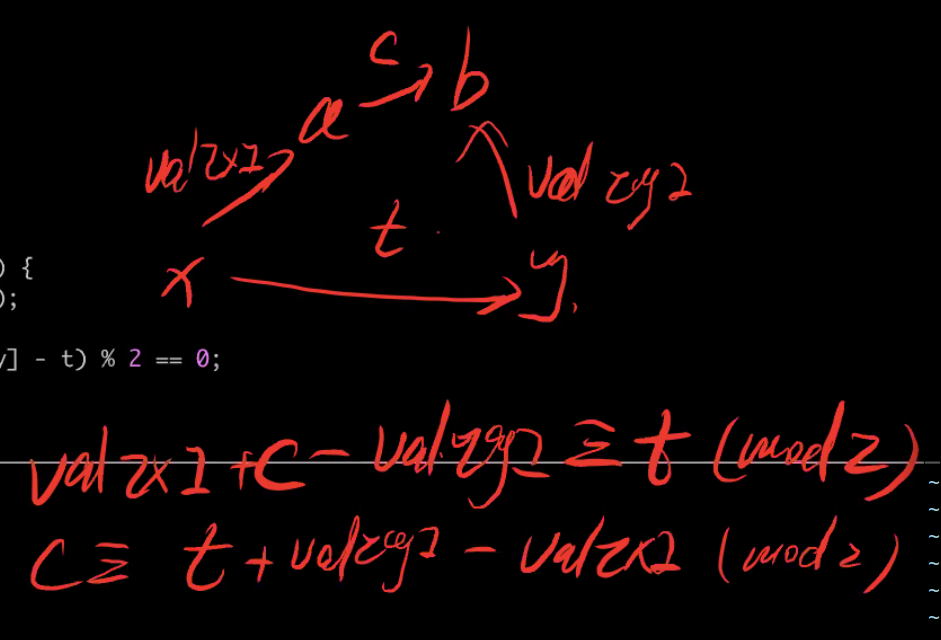 c
a → b
val[x]
val[y]
t
x → y.
) {
);
y] - t) % 2 == 0;
val[x] + c - val[y] ≡ t (mod 2)
c ≡ t + val[y] - val[x] (mod 2)
~
~
~
~
~
~